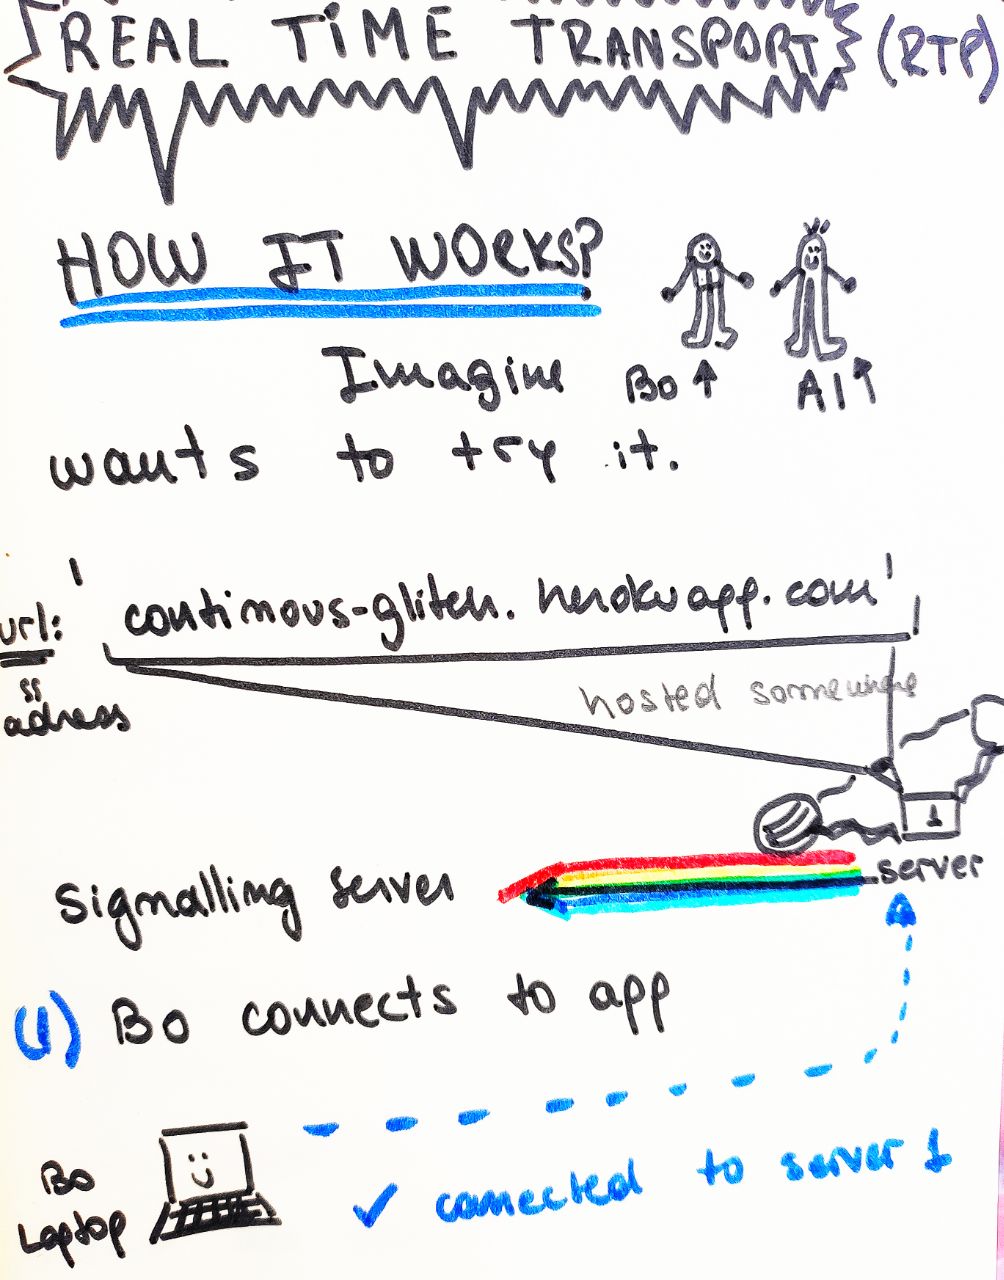 REAL TIME TRANSPORT (RTP)
HOW IT WORKS?
Imagine Bo Al
wants to try it.
url: continous-glitch.herokuapp.com
adress
hosted somewhere
1
server
signalling server
(1) Bo connects to app
Bo
Laptop
✓ connected to server 1